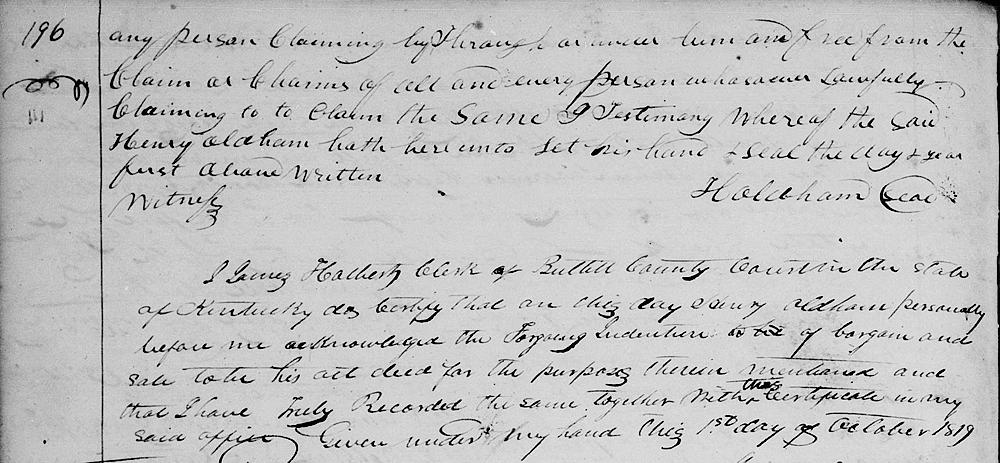 196
any person Claiming by Through or under him and free from the
Claim or Claims of all and every person whosoever Lawfully
Claiming to to Claim the Same I Testimony Whereof the said
Henry Oldham hath hereunto Set his hand & Seal the day & year
first Above Written
Witness
H Oldham Seal
I James Halbert Clerk of Bullitt County Court in the State
of Kentucky do Certify that on this day Henry Oldham personally
before me acknowledged the Forgoing Indenture of bargain and
sale to be his act deed for the purposes therein mentioned and
that I have Truly Recorded the same together With this Certificate in my
said office Given under my hand this 1st day of October 1819